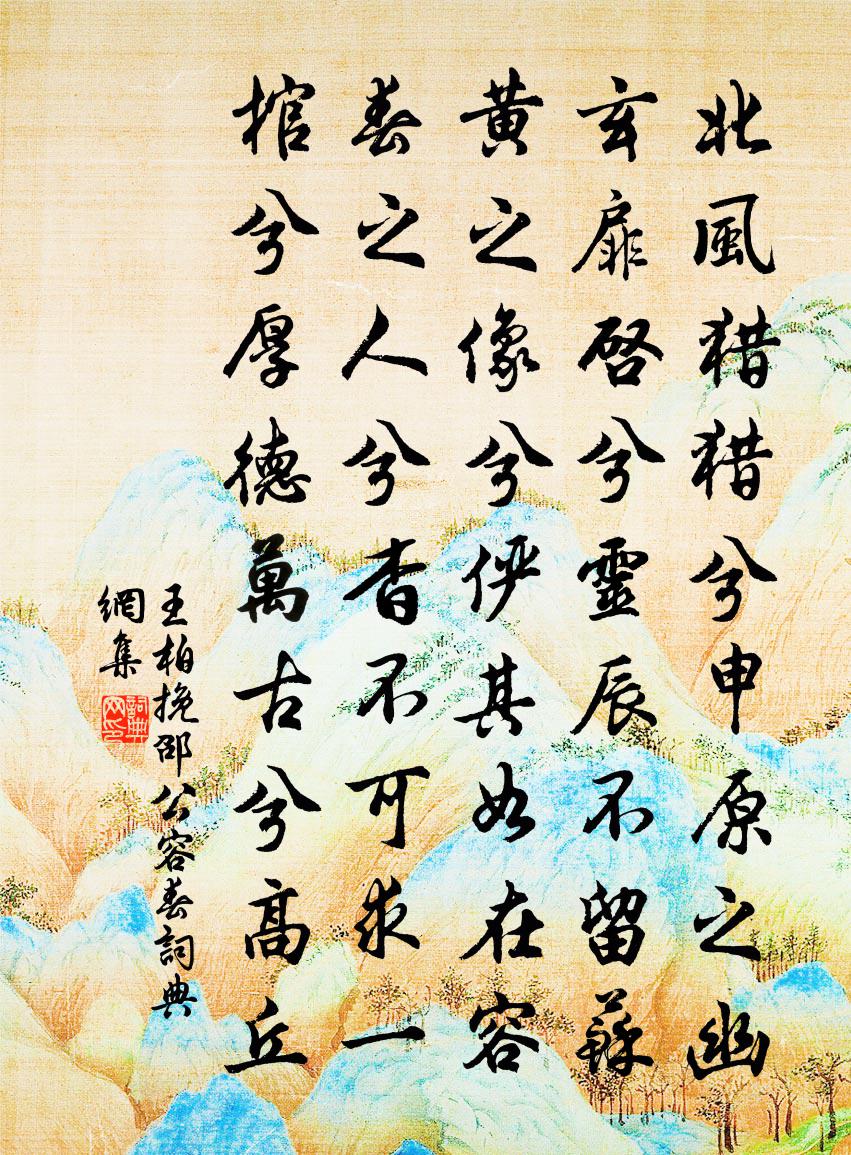 北風猎猎兮申原之幽
玄扉啓兮靈辰不留蘇
黄之像兮俨其如在容
春之人兮杳不可求一
棺兮厚德萬古兮高丘
王柏挽邵公容春詞典
網集
詞典
网印